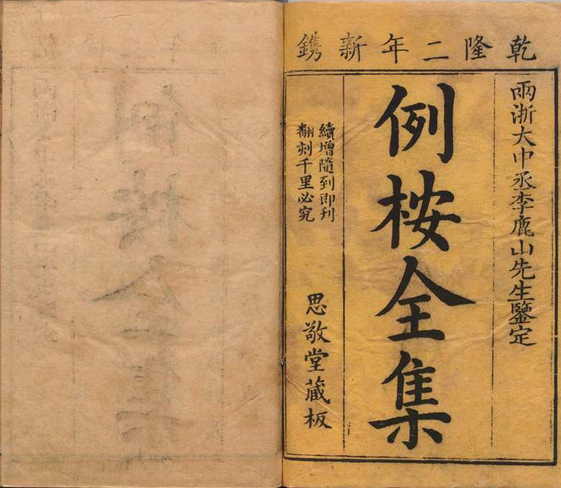 乾隆二年新鐫
兩浙大中丞李鹿山先生鑒定
例桉全集
續增隨到即刊
翻刻千里必究
思敬堂藏板